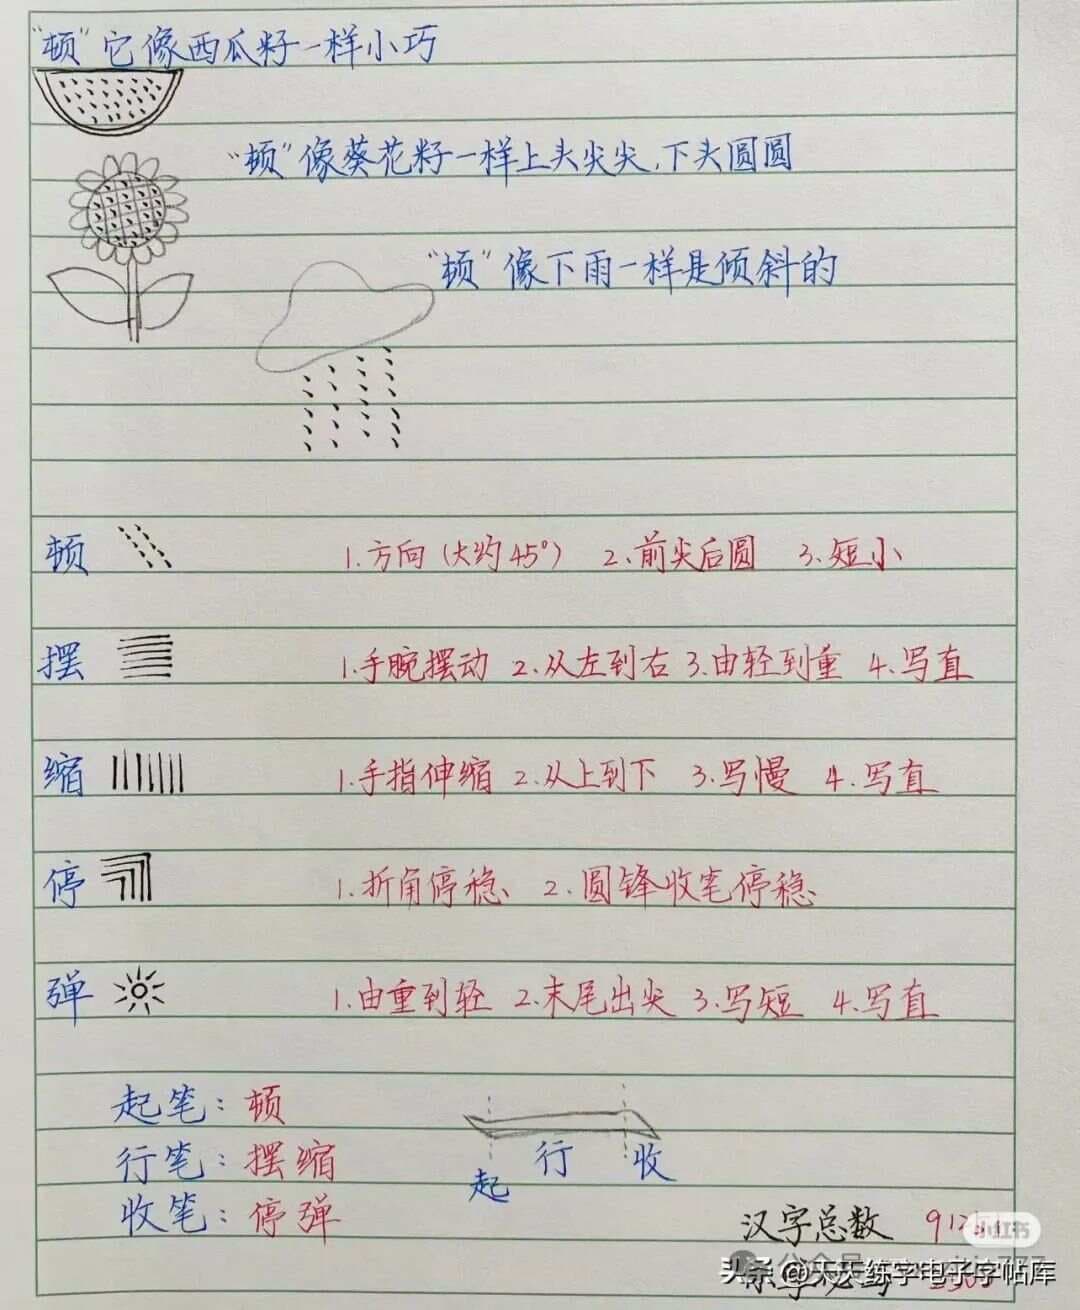 "顿"它像西瓜籽一样小巧
"顿"像葵花籽一样上头尖尖,下头圆圆
"顿"像下雨一样是倾斜的
顿 1.方向(大约45°) 2.前尖后圆 3.短小
摆 1.手腕摆动 2.从左到右 3.由轻到重 4.写直
缩 1.手指伸缩 2.从上到下 3.写慢 4.写直
停 1.折角停稳、 2.圆锋收笔停稳、
弹 1.由重到轻 2.末尾出尖 3.写短 4.写直
起笔:顿
行笔:摆缩
收笔:停弹
起 行 收
汉字总数
小红书
头条 @天天练字电子字帖库